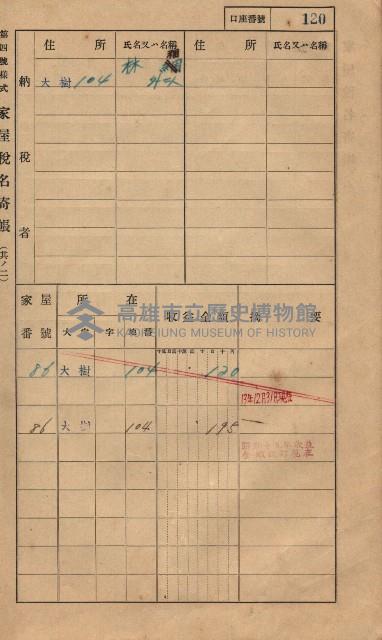 口座番號 120
第四號樣式 家屋稅名寄帳 (其ノ二)
納稅者
住所 氏名又ハ名稱 住所 氏名又ハ名稱
大樹 104 林
家屋番號 所在 收益金額 摘要
大字 字 地番
86 大樹 104 120
13年12月31日
86 大樹 104 195
高雄市立歷史博物館
KAOHSIUNG MUSEUM OF HISTORY